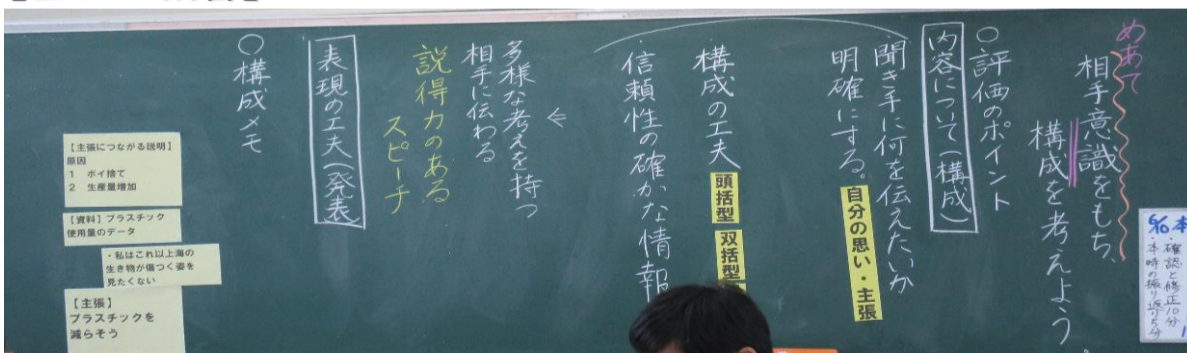 めあて
相手意識をもち、
構成を考えよう。
○評価のポイント
内容について(構成)
聞き手に何を伝えたいか
明確にする。
自分の思い・主張
構成の工夫
頭括型
双括型
信頼性の確かな情報
←
多様な考えを持つ
相手に伝わる
説得力のある
スピーチ
表現の工夫(発表)
○構成メモ
【主張につながる説明】
原因
1 ポイ捨て
2 生産量増加
【資料】プラスチック
使用量のデータ
・私はこれ以上海の
生き物が傷つく姿を
見たくない
【主張】
プラスチックを
減らそう
・確認と修正10分
・本時の振り返り5分